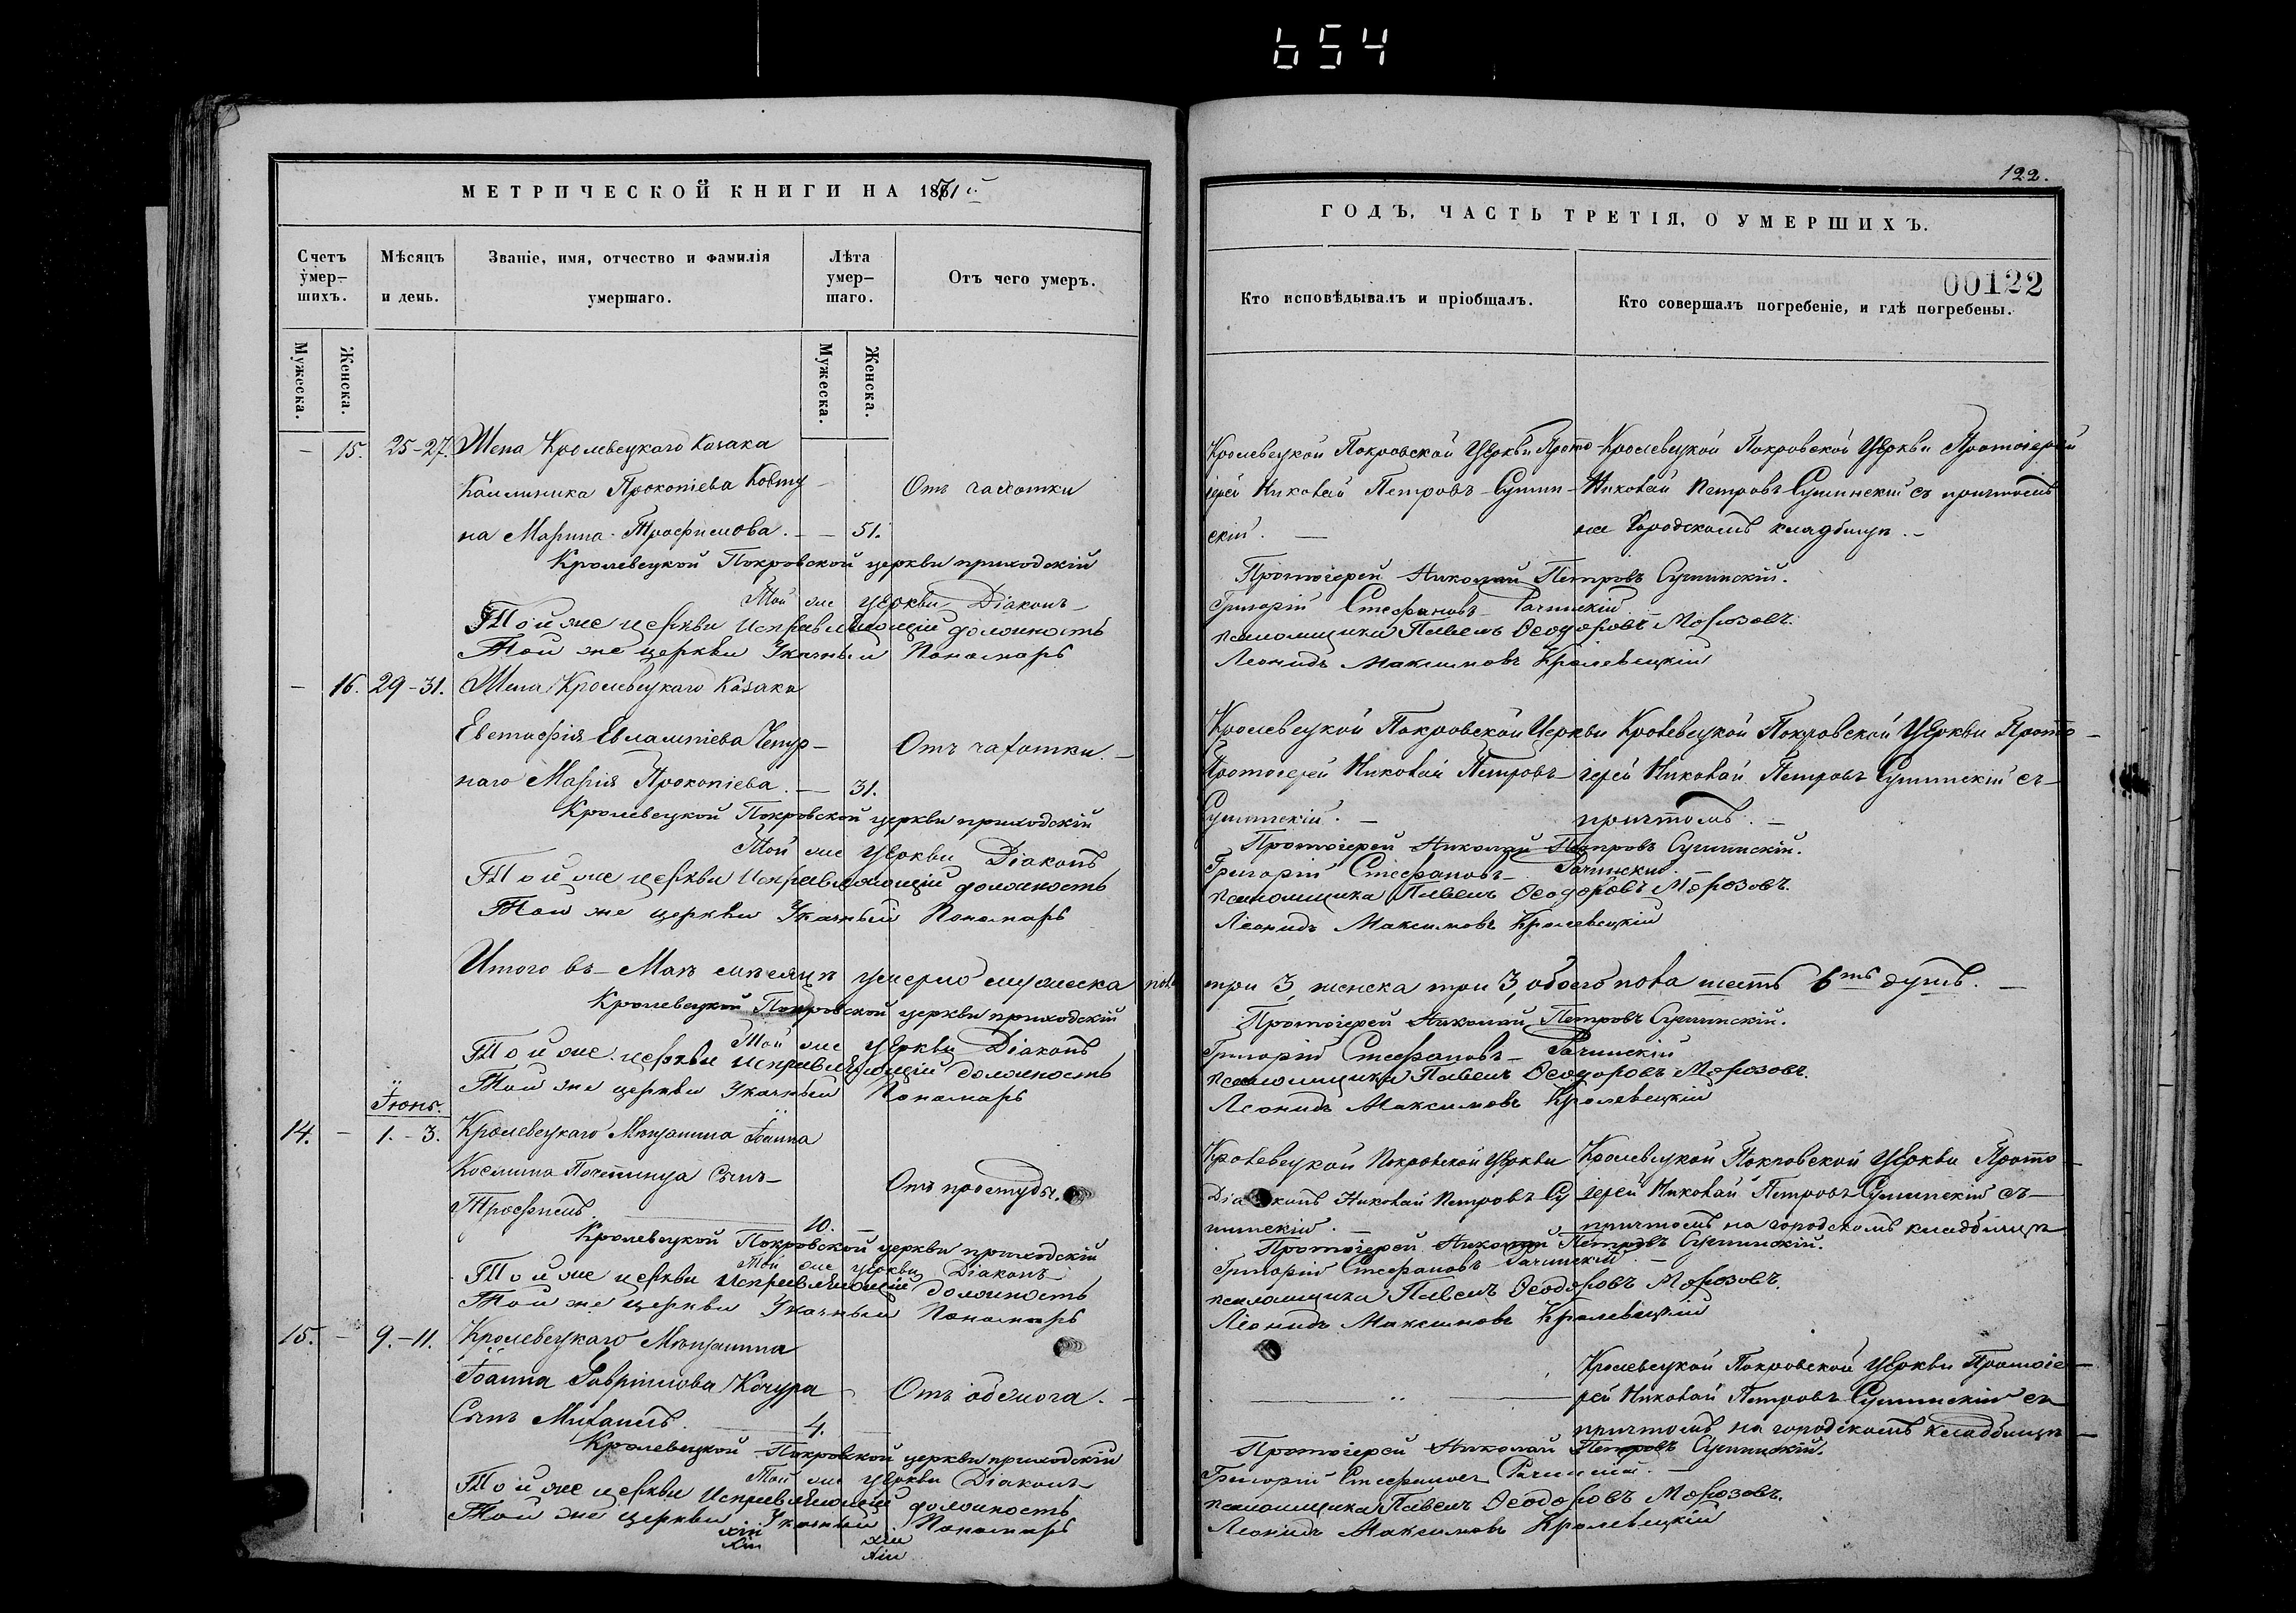 654
МЕТРИЧЕСКОЙ КНИГИ НА 1871й
Счетъ умер-
шихъ.
Мѣсяцъ
и день.
Званіе, имя, отчество и фамилія
умершаго.
Лѣта
умер-
шаго.
Отъ чего умеръ.
Мужеска.
Женска.
Мужеска.
Женска.
— 15. 25-27. Жена Кролевецкаго Козака
Каллиника Прокопіева Ковту-
на Марина Трофимова. — — 51.
Отъ чахотки
Кролевецкой Покровской церкви приходскій
Той же церкви Діаконъ
Той же церкви Исправляющій должность
Той же церкви Указный Пономарь
— 16. 29-31. Жена Кролевецкаго Козака
Евстафія Евлампіева Чепур-
наго Марія Прокопіева. — 31.
Отъ чахотки. —
Кролевецкой Покровской церкви приходскій
Той же церкви Діаконъ
Той же церкви Исправляющій должность
Той же церкви Указный Пономарь
Итого въ Маѣ мѣсяцѣ умерло мужеска пола
Кролевецкой Покровской церкви приходскій
Той же церкви Діаконъ
Той же церкви Исправляющій должность
Той же церкви Указный Пономарь
Іюнь.
14. — 1.-3. Кролевецкаго Мѣщанина Іоанна
Космина сынъ
Трофимъ. 10. —
Отъ простуды.
Кролевецкой Покровской церкви приходскій
Той же церкви Діаконъ
Той же церкви Исправляющій должность
Той же церкви Указный Пономарь
15. — 9.-11. Кролевецкаго Мѣщанина
Іоанна Гавріилова Кочура
Сынъ Михаилъ. 4.
Отъ обжога. —
Кролевецкой Покровской церкви приходскій
Той же церкви Діаконъ
Той же церкви Исправляющій должность
Той же церкви Указный Пономарь
122.
ГОДЪ, ЧАСТЬ ТРЕТІЯ, О УМЕРШИХЪ.
00122
Кто исповѣдывалъ и пріобщалъ.
Кто совершалъ погребеніе, и гдѣ погребены.
Кролевецкой Покровской Церкви Прото-
іерей Николай Петровъ Сумин-
скій. —
Кролевецкой Покровской Церкви Протоіерей
Николай Петровъ Суминскій съ причтомъ
на Городскомъ кладбищѣ. —
Протоіерей Николай Петровъ Суминскій.
Григорій Стефановъ Рачинскій
псаломщика Павелъ Ѳеодоровъ Морозовъ.
Леонидъ Максимовъ Кролевецкій
Кролевецкой Покровской Церкви
Протоіерей Николай Петровъ
Суминскій. —
Кролевецкой Покровской Церкви Прото-
іерей Николай Петровъ Суминскій съ
причтомъ. —
Протоіерей Николай Петровъ Суминскій.
Григорій Стефановъ Рачинскій.
псаломщика Павелъ Ѳеодоровъ Морозовъ.
Леонидъ Максимовъ Кролевецкій
три 3, женска три 3, обоего пола шесть 6ть душъ. —
Протоіерей Николай Петровъ Суминскій.
Григорій Стефановъ Рачинскій
псаломщика Павелъ Ѳеодоровъ Морозовъ.
Леонидъ Максимовъ Кролевецкій
Кролевецкой Покровской Церкви
Діаконъ Николай Петровъ Су-
минскій. —
Кролевецкой Покровской Церкви Прото-
іерей Николай Петровъ Суминскій съ
причтомъ на городскомъ кладбищѣ
Протоіерей Николай Петровъ Суминскій.
Григорій Стефановъ Рачинскій —
псаломщика Павелъ Ѳеодоровъ Морозовъ.
Леонидъ Максимовъ Кролевецкій
Кролевецкой Покровской Церкви Протоіе-
рей Николай Петровъ Суминскій съ
причтомъ на городскомъ кладбищѣ
Протоіерей Николай Петровъ Суминскій.
Григорій Стефановъ Рачинскій. —
псаломщика Павелъ Ѳеодоровъ Морозовъ.
Леонидъ Максимовъ Кролевецкій